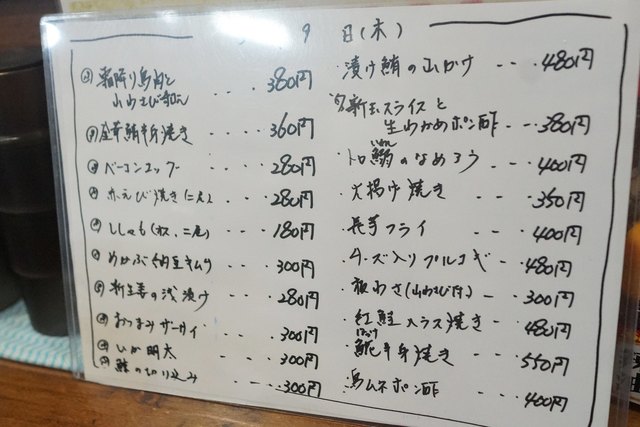 9 日(木)
霜降り鳥肉と
山わさび和え --- 380円
金華鯖半身焼き --- 360円
ベーコンエッグ --- 280円
赤えび焼き(二尾) --- 280円
ししゃも(オス、二尾) --- 180円
めかぶ納豆キムチ --- 300円
新生姜の浅漬け --- 280円
おつまみザーサイ --- 300円
いか明太 --- 300円
鮭の切り込み --- 300円
漬け鮪の山かけ --- 480円
新玉スライスと
生わかめポン酢 --- 380円
トロ鰯のなめろう --- 400円
いわし
大揚げ焼き --- 350円
長芋フライ --- 400円
チーズ入りプルコギ --- 480円
板わさ(山わさび付) --- 300円
紅鮭ハラス焼き --- 480円
ほっけ
𩸽半身焼き --- 550円
鳥ムネポン酢 --- 400円